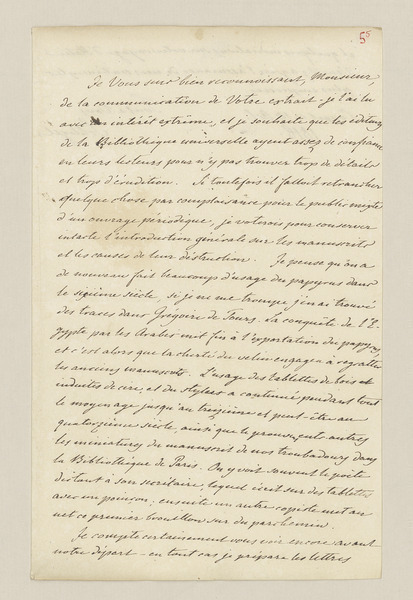 5⁵
Je Vous suis bien reconnoissant, Monsieur,
de la communication de Votre extrait - je l'ai lu
avec un intérêt extrême, et je souhaite que les éditeurs
de la Bibliothèque universelle ayent assez de confiance
en leurs lecteurs pour n'y pas trouver trop de détails
et trop d'érudition. Si toutefois il falloit retrancher
quelque chose par complaisance pour le public mixte
d'un ouvrage périodique, je voterois pour conserver
intacte l'introduction générale sur les manuscrits
et les causes de leur destruction. Je pense qu'on a
de nouveau fait beaucoup d'usage du papyrus dans
le sixième siècle, si je ne me trompe j'en ai trouvé
des traces dans Grégoire de Tours. La conquête de l'E-
gypte par les Arabes mit fin à l'exportation du papyrus,
et c'est alors que la cherté du velin engagea à regratter
les anciens manuscrits. L'usage des tablettes de bois
enduites de cire, et du stylet a continué pendant tout
le moyen age jusqu'au treizième et peut-être au
quatorzième siècle, ainsi que le prouvent entre autres
les miniatures du manuscrit de nos troubadours dans
la Bibliothèque de Paris. On y voit souvent le poète
dictant à son secrétaire, lequel écrit sur des tablettes
avec un poinçon; ensuite un autre copiste met au
net ce premier brouillon sur du parchemin.
Je compte certainement vous voir encore avant
notre départ - en tout cas je prépare les lettres